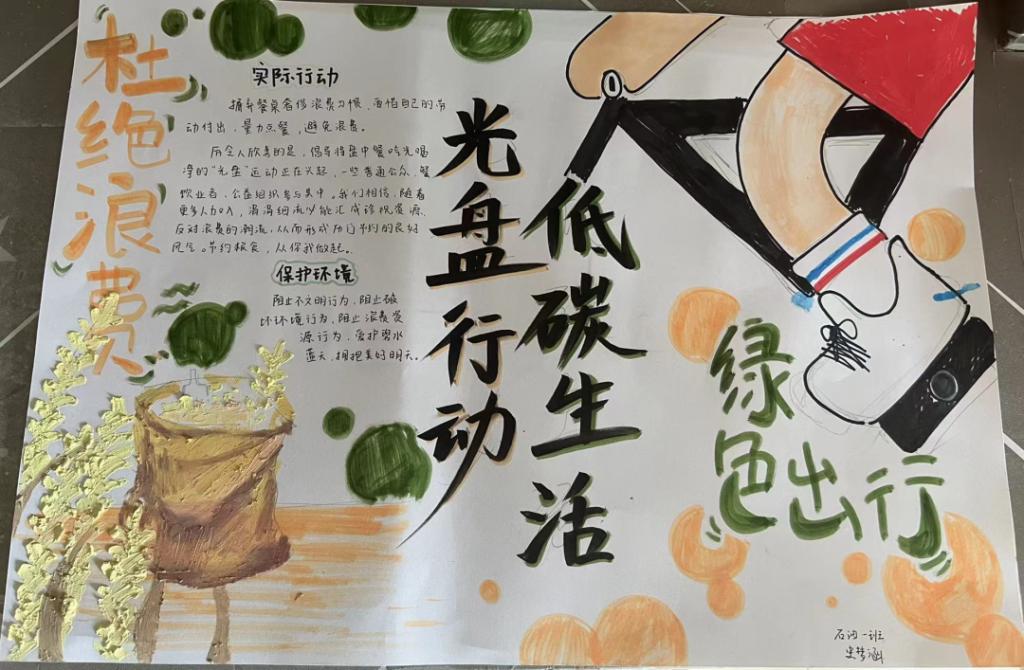 杜绝浪费
实际行动
摒弃餐桌奢侈浪费习惯,珍惜自己的劳
动付出,量力点餐,避免浪费。
而令人欣喜的是,倡导将盘中餐吃光喝
净的“光盘”运动正在兴起,一些普通公众、餐
饮业者、公益组织参与其中。我们相信,随着
更多人加入,涓涓细流必能汇成珍视资源、
反对浪费的潮流,从而形成厉行节约的良好
风气。节约粮食,从你我做起。
保护环境
阻止不文明行为,阻止破
坏环境行为,阻止浪费资
源行为,爱护碧水
蓝天,拥抱美好明天。
光盘行动
低碳生活
绿色出行
石油一班